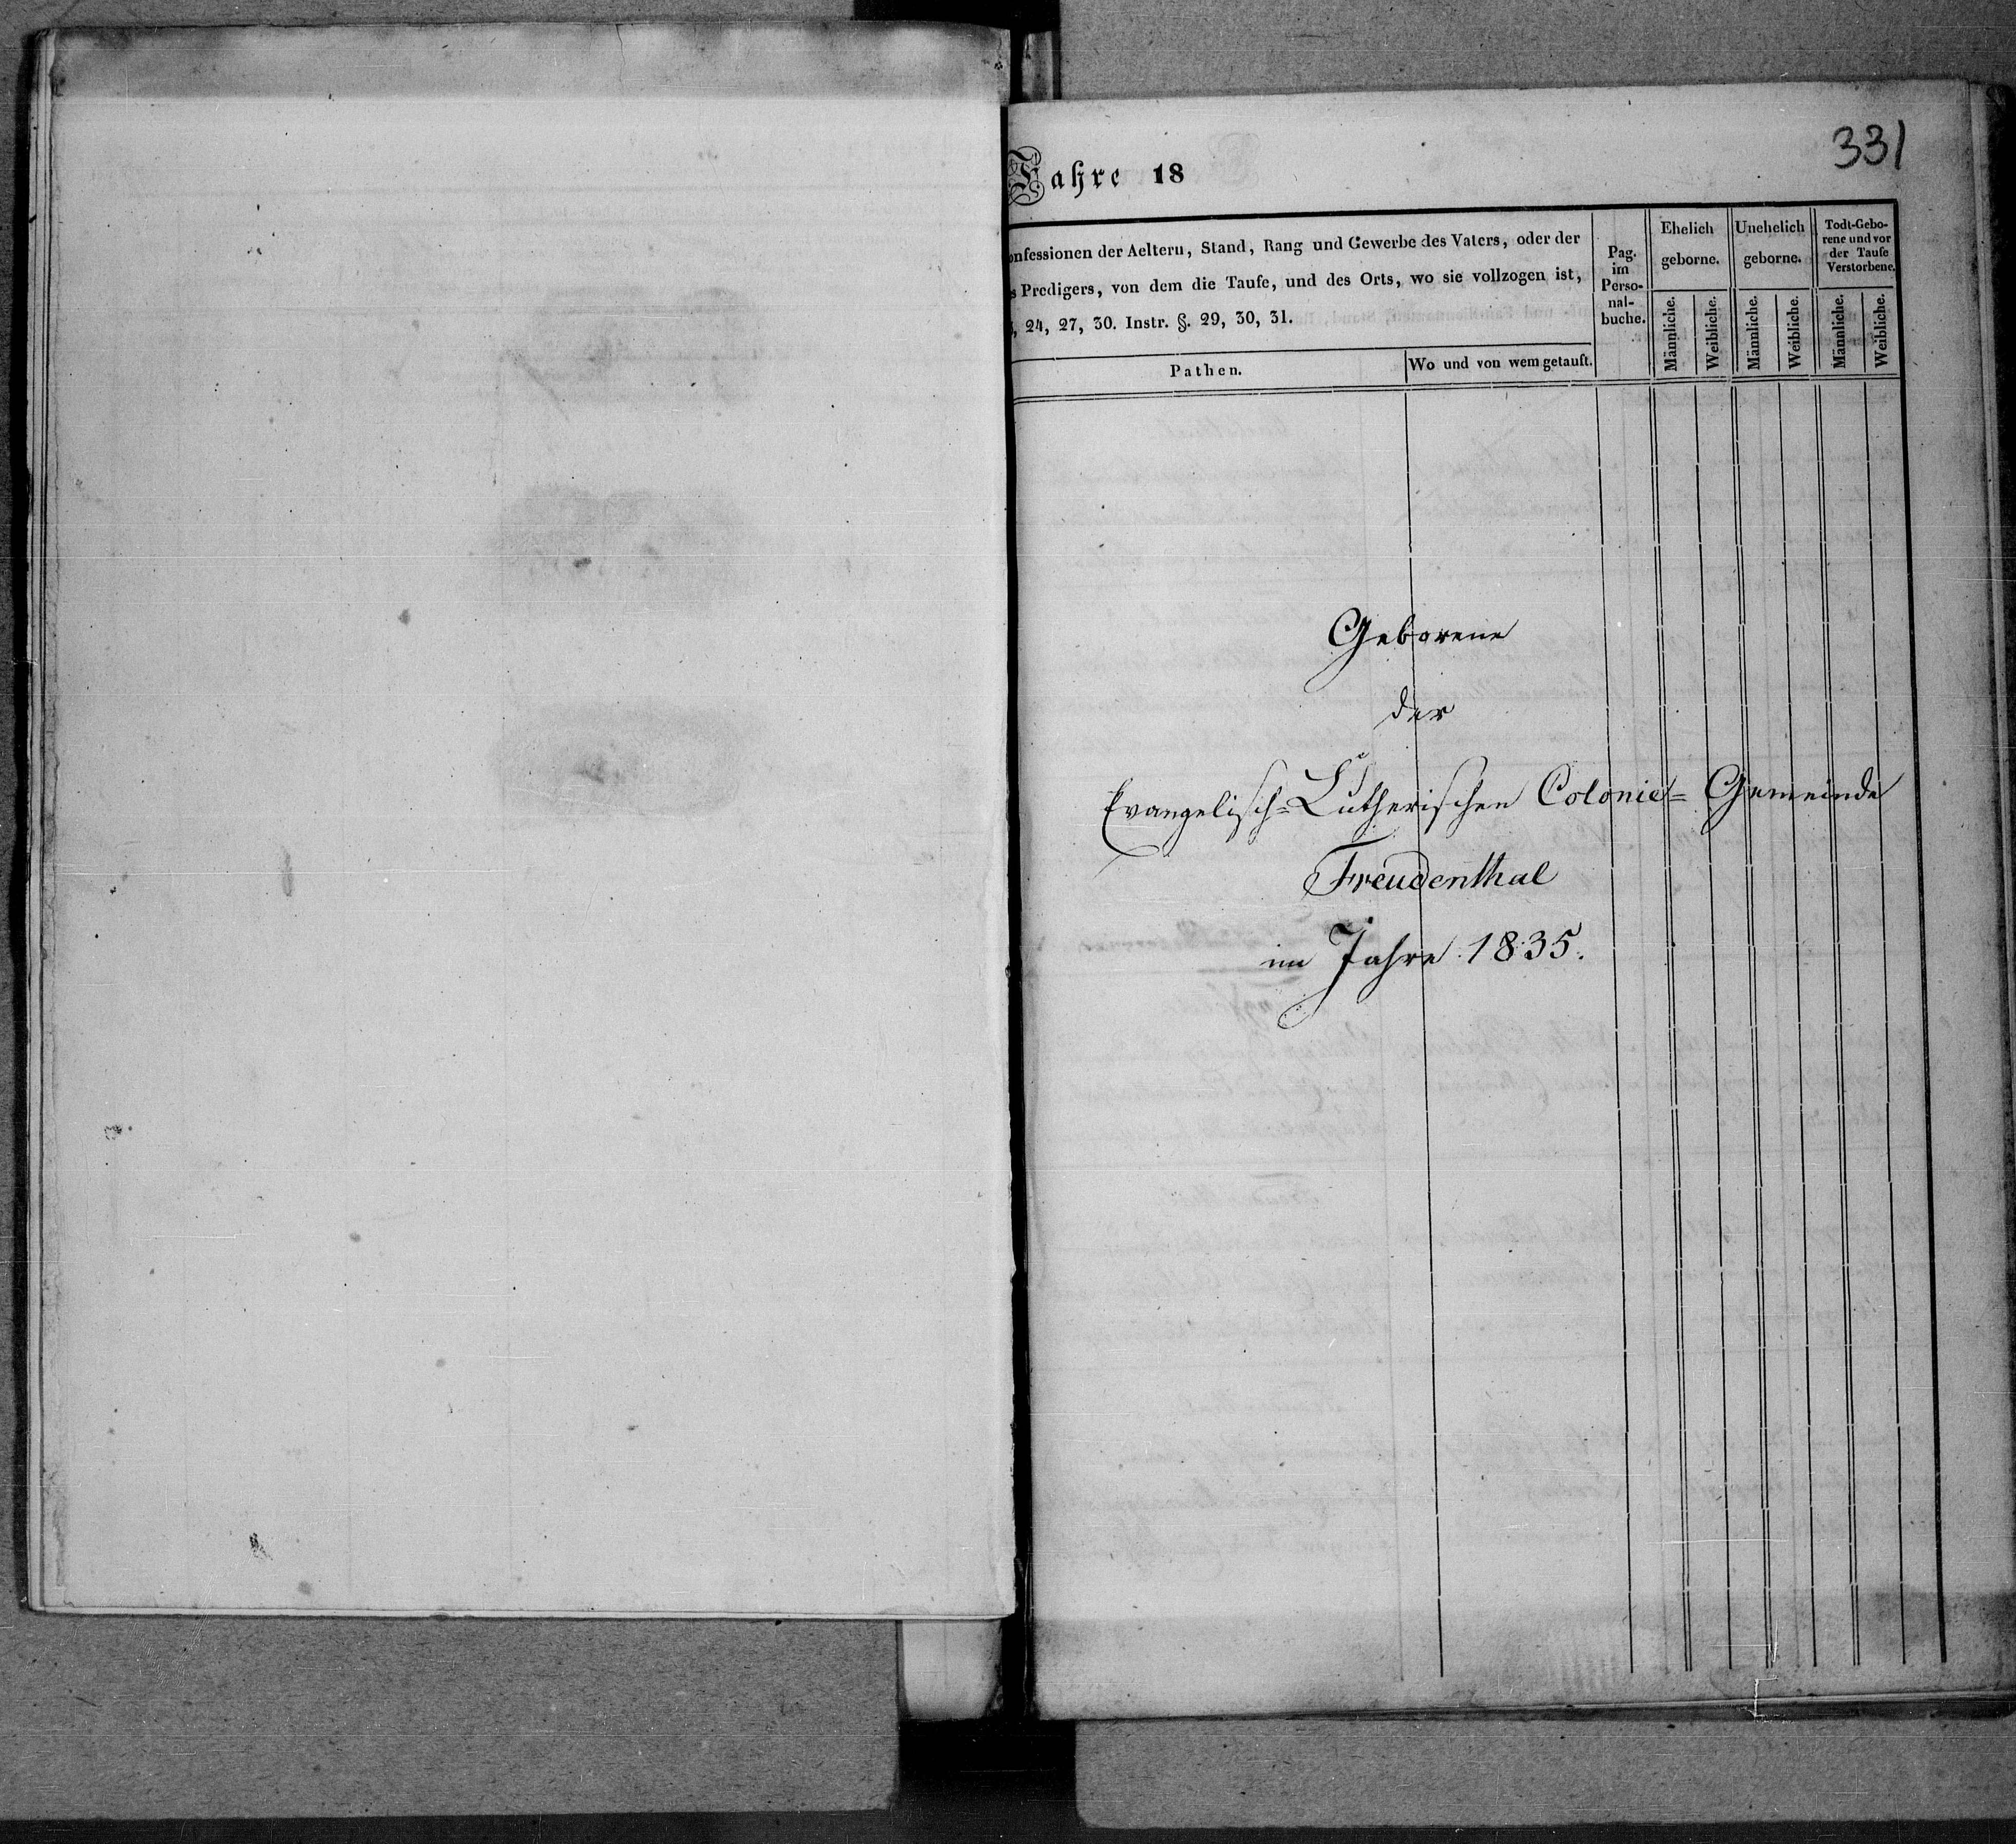 331
Jahre 18
onfessionen der Aeltern, Stand, Rang und Gewerbe des Vaters, oder der
s Predigers, von dem die Taufe, und des Orts, wo sie vollzogen ist,
, 24, 27, 30. Instr. §. 29, 30, 31.
Pathen.
Wo und von wem getauft.
Pag.
im
Perso-
nal-
buche.
Ehelich
geborne.
Männliche.
Weibliche.
Unehelich
geborne.
Männliche.
Weibliche.
Todt-Gebo-
rene und vor
der Taufe
Verstorbene.
Männliche.
Weibliche.
Geborene
der
Evangelisch=Lutherischen Colonie=Gemeinde
Freudenthal
im Jahre 1835.